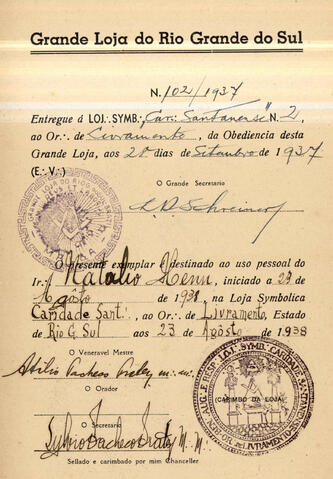 Grande Loja do Rio Grande do Sul
N. 102/1937
Entregue á LOJ∴ SYMB∴ "Car∴ Santanense" N. 2,
ao Or∴ de Livramento, da Obediencia desta
Grande Loja, aos 20 dias de Setembro de 1937
(E∴ V∴)
O Grande Secretario
O presente exemplar é destinado ao uso pessoal do
Ir∴ Natalio Henn, iniciado a 23
Agosto de 1938 na Loja Symbolica
Caridade Sant∴, ao Or∴ de Livramento, Estado
Rio G. Sul aos 23 de Agôsto de 1938
O Veneravel Mestre
Pacheco
O Orador
O Secretario
Sylvio Pacheco Prates M∴ M∴
Sellado e carimbado por mim Chanceller
(CARIMBO DA LOJA)
AUG∴ E RESP∴ LOJ∴ SYMB∴ CARIDADE SANTANENSE
LIVRAMENTO